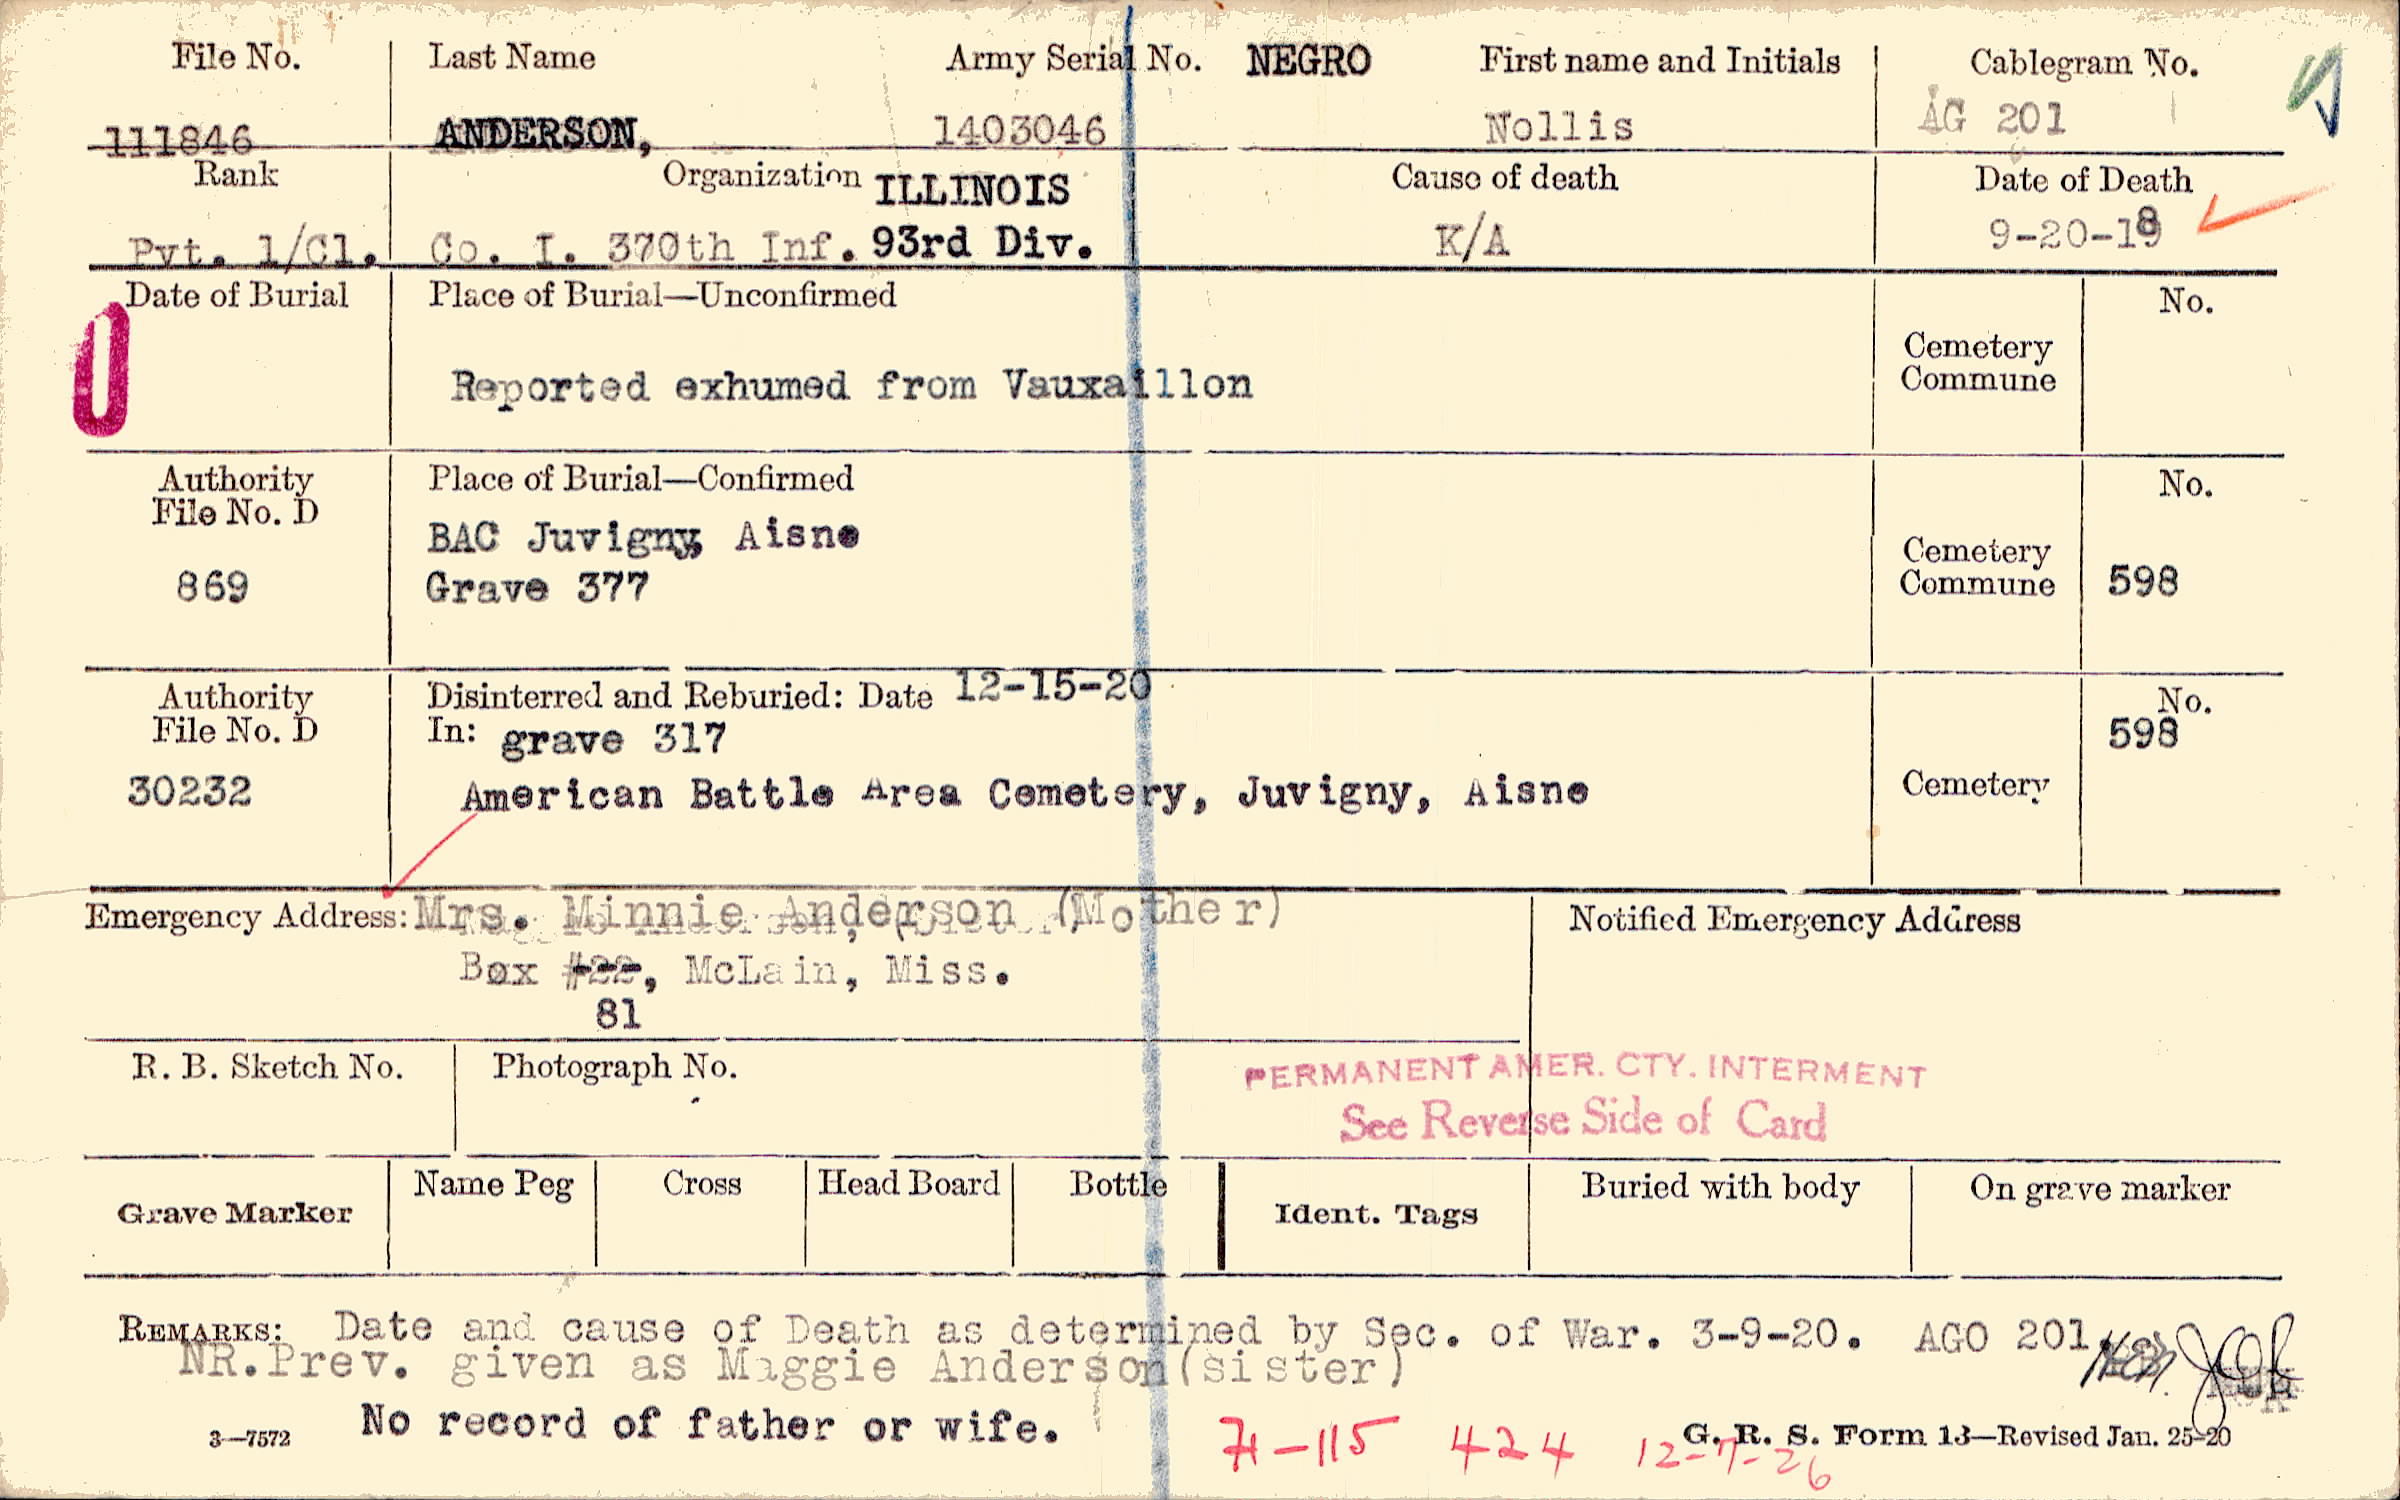 File No. Last Name Army Serial No. NEGRO First name and Initials Cablegram No.
111846 ANDERSON, 1403046 Nollis AG 201
Rank Organization ILLINOIS Cause of death Date of Death
Pvt. 1/Cl. Co. I. 370th Inf. 93rd Div. K/A 9-20-18
Date of Burial Place of Burial—Unconfirmed No.
0
Cemetery
Commune
Reported exhumed from Vauxaillon
Authority Place of Burial—Confirmed No.
File No. D
BAC Juvigny, Aisne
Cemetery
869 Grave 377 Commune 598
Authority Disinterred and Reburied: Date 12-15-20 No.
File No. D In: grave 317 598
30232 American Battle Area Cemetery, Juvigny, Aisne Cemetery
Emergency Address: Mrs. Minnie Anderson (Mother) Notified Emergency Address
Box #22, McLain, Miss.
81
R. B. Sketch No. Photograph No.
PERMANENT AMER. CTY. INTERMENT
See Reverse Side of Card
Grave Marker Name Peg Cross Head Board Bottle Ident. Tags Buried with body On grave marker
REMARKS: Date and cause of Death as determined by Sec. of War. 3-9-20. AGO 201.
NR. Prev. given as Maggie Anderson(sister)
3—7572 No record of father or wife.
71-115 424 12-7-26
G. R. S. Form 13—Revised Jan. 25-20